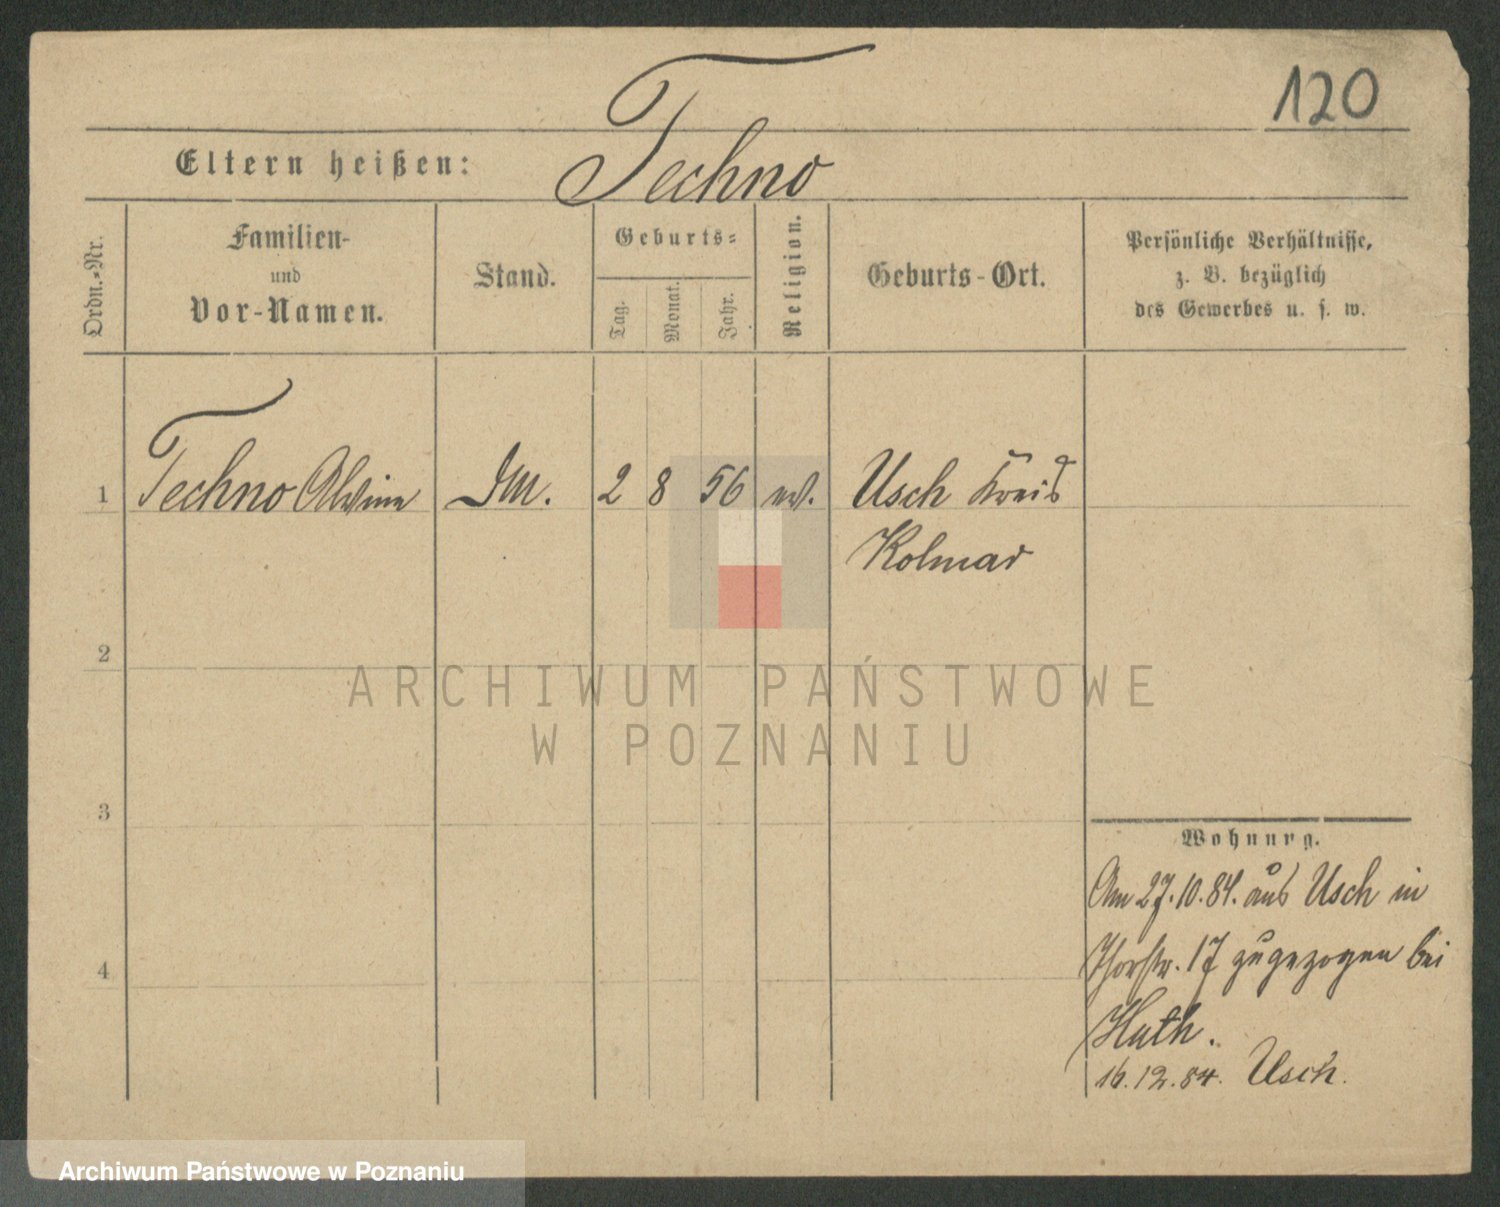 120
Techno
Eltern heißen:
Ordn.-Nr.
Familien-
und
Vor-Namen.
Stand.
Geburts-
Tag.
Monat.
Jahr.
Religion.
Geburts-Ort.
Persönliche Verhältnisse,
z. B. bezüglich
des Gewerbes u. s. w.
1 Techno Alwine 2 8 56 ev. Usch Kreis
Kolmar
2
ARCHIWUM PAŃSTWOWE
W POZNANIU
3
Wohnung.
Am 27.10.84. aus Usch in
Thorstr. 17 zugezogen bei
Huth.
16.12.84. Usch.
4
Archiwum Państwowe w Poznaniu